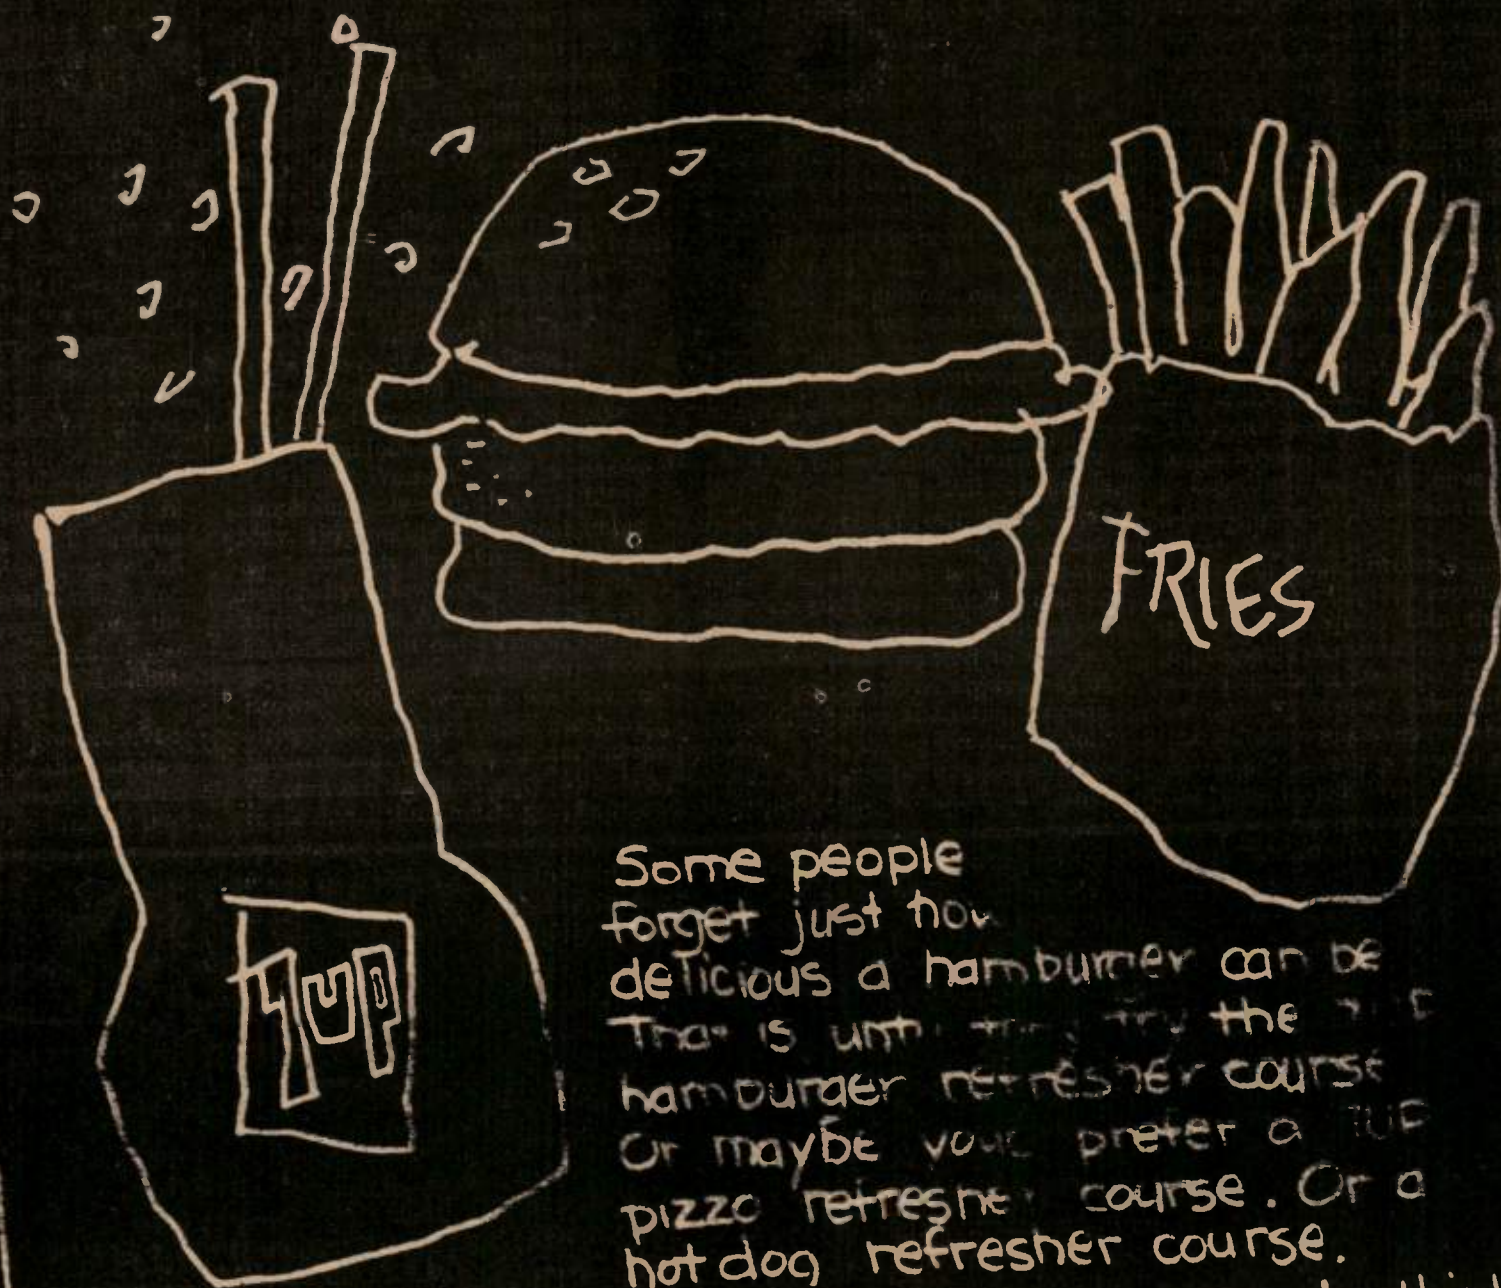 FRIES
7UP
Some people
forget just how
delicious a hamburger can be
That is until they try the 7UP
hamburger refresher course
Or maybe prefer a 7UP
pizza refresher course. Or a
hot dog refresher course.